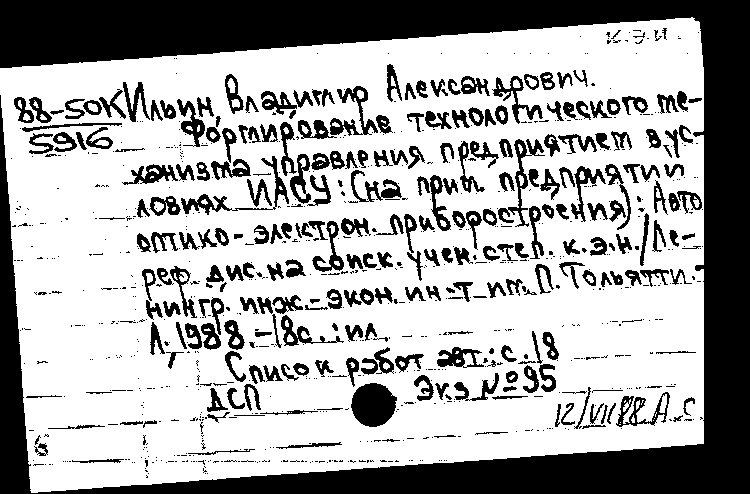 К.Э.И.
88-50К Ильин, Владимир Александрович.
5916 Формирование технологического ме-
ханизма управления предприятием в ус-
ловиях ИАСУ: (на прим. предприятий
оптико-электрон. приборостроения): Авто
реф. дис. на соиск. учен. степ. к.э.н. / Ле-
нингр. инж.-экон. ин-т им. П. Тольятти.-
Л., 1988.-18с.:ил.
Список работ авт.: с.18
ДСП Экз №95
12/VII 88 А С
6